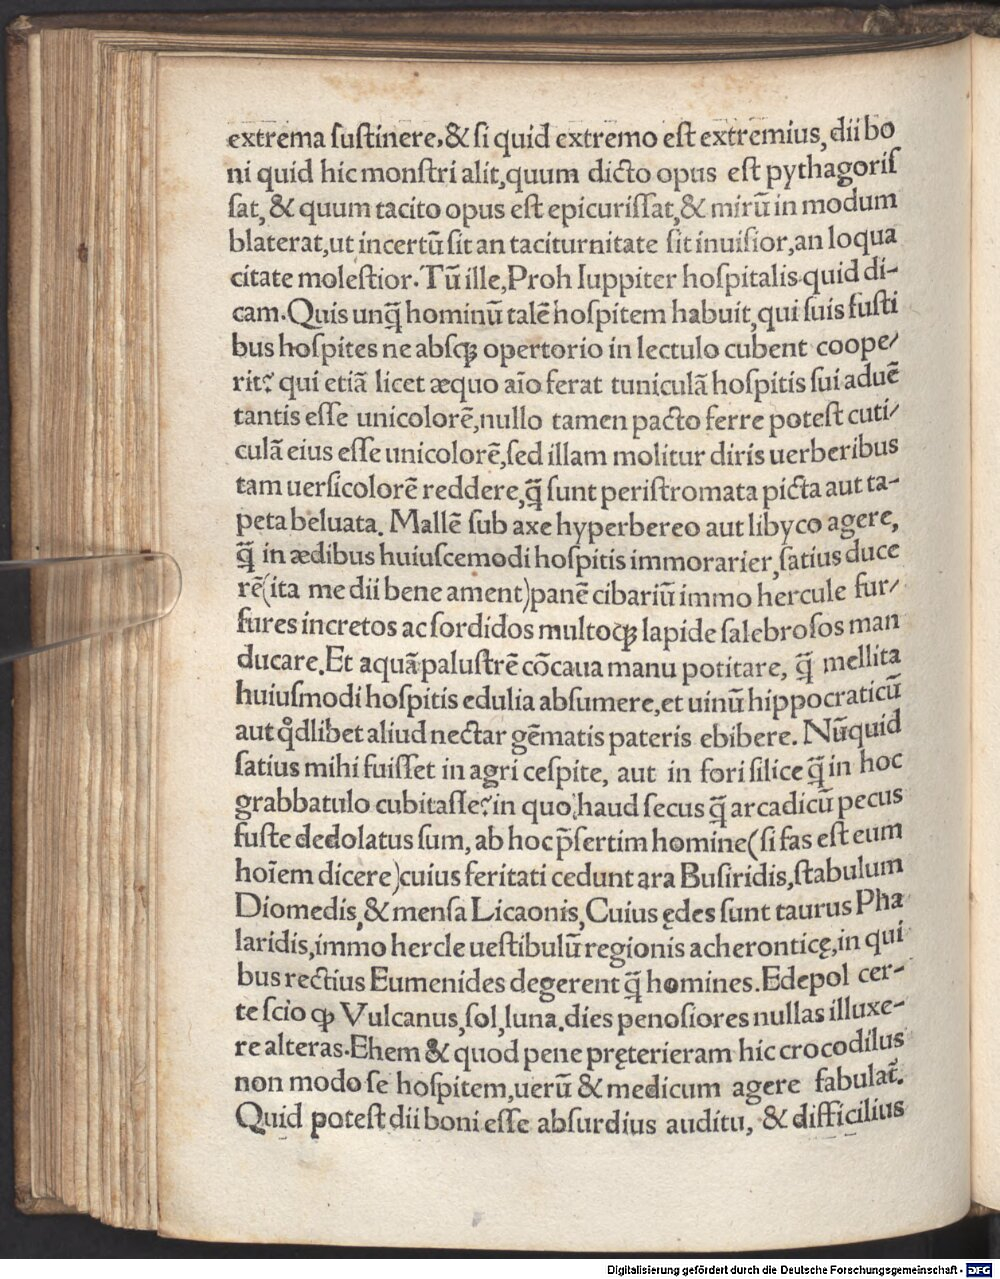 extrema sustinere,& si quid extremo est extremius, dii bo
ni quid hic monstri alit, quum dicto opus est pythagoris
sat, & quum tacito opus est epicurissat, & mirū in modum
blaterat, ut incertū sit an taciturnitate sit inuisior, an loqua
citate molestior. Tū ille, Proh Iuppiter hospitalis quid di-
cam. Quis unq̄ hominū talē hospitem habuit, qui suis fusti
bus hospites ne absqꝫ opertorio in lectulo cubent coope/
rit? qui etiā licet æquo aīo ferat tuniculā hospitis sui aduē
tantis esse unicolorē, nullo tamen pacto ferre potest cuti/
culā eius esse unicolorē, sed illam molitur diris uerberibus
tam uersicolorē reddere, q̄ sunt peristromata picta aut ta-
peta beluata. Mallē sub axe hyperbereo aut libyco agere,
q̄ in ædibus huiuscemodi hospitis immorarier, satius duce
rē(ita me dii bene ament)panē cibariū immo hercule fur/
fures incretos ac sordidos multoqꝫ lapide salebrosos man
ducare. Et aquā palustrē cōcaua manu potitare, q̄ mellita
huiusmodi hospitis edulia absumere, et uinū hippocraticū
aut qͦdlibet aliud nectar gēmatis pateris ebibere. Nūquid
satius mihi fuisset in agri cespite, aut in fori silice q̄ in hoc
grabbatulo cubitasse? in quo haud secus q̄ arcadicū pecus
fuste dedolatus sum, ab hoc p̄sertim homine(si fas est eum
hoīem dicere)cuius feritati cedunt ara Busiridis, stabulum
Diomedis, & mensa Licaonis, Cuius ędes sunt taurus Pha
laridis, immo hercle uestibulū regionis acheronticę, in qui
bus rectius Eumenides degerent q̄ homines. Edepol cer-
te scio ꝙ Vulcanus, sol, luna. dies penosiores nullas illuxe-
re alteras. Ehem & quod pene pręterieram hic crocodilus
non modo se hospitem, uerū & medicum agere fabulat̄.
Quid potest dii boni esse absurdius auditu, & difficilius
Digitalisierung gefördert durch die Deutsche Forschungsgemeinschaft - DFG